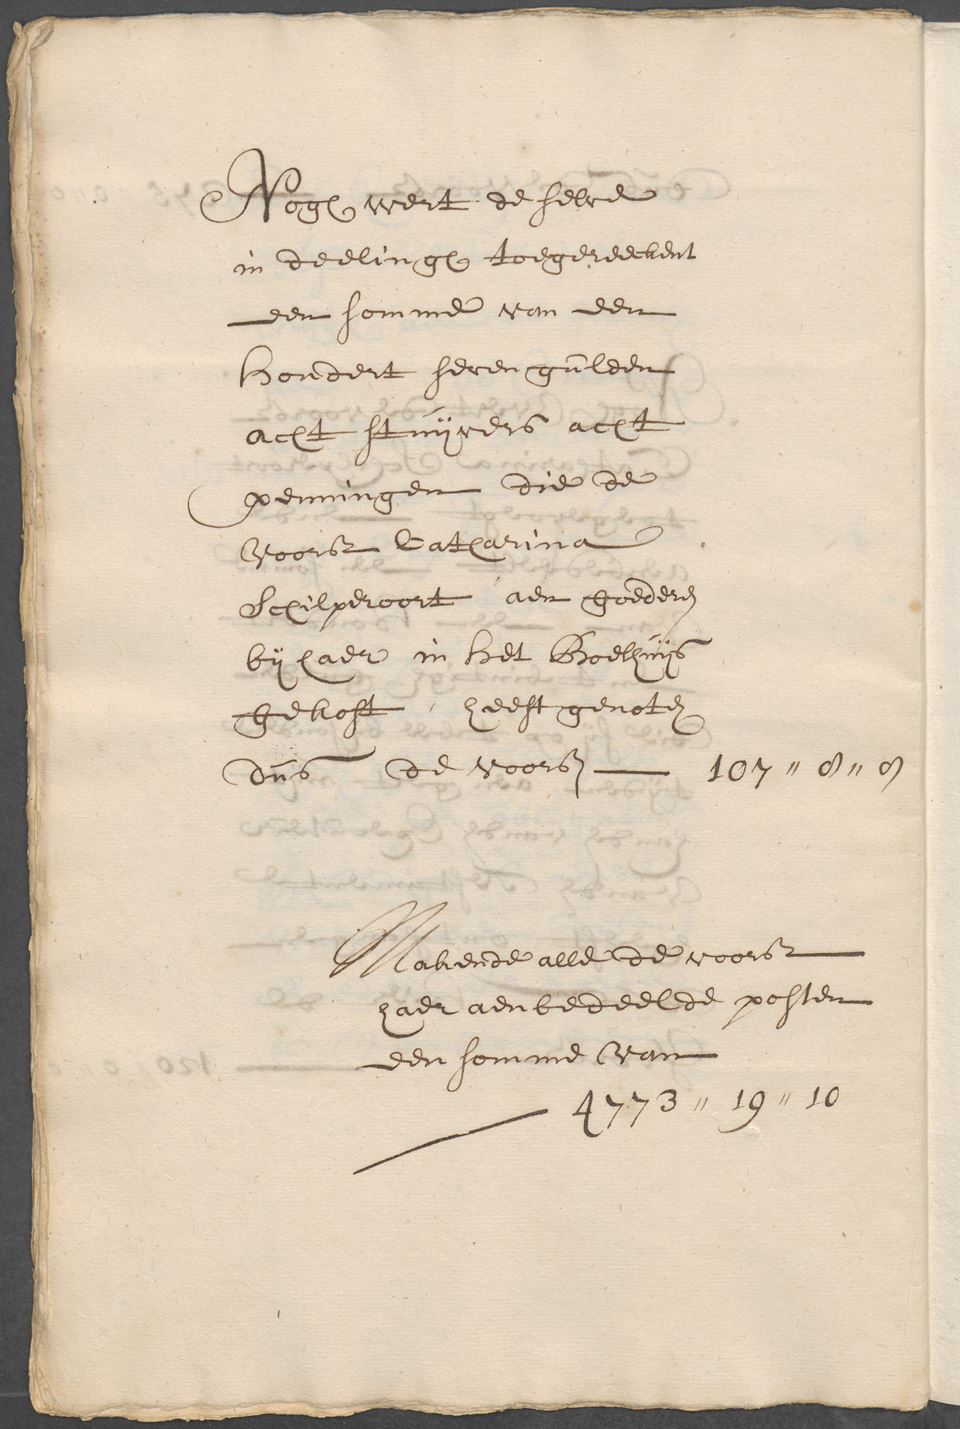 Nogh wert de selve
in deelingh toegereeckent
een somme van een
hondert seven gulden
acht stuijvers acht
penningen die de
voorsz Catharina
Schilperoort aen goederen
bij haer in het Boelhuijs
gekost, heeft genoten
dus de voorsz 107 " 8 " 8
Makende alle de voorsz
haer aenbedeelde posten
een somme van
4773 " 19 " 10